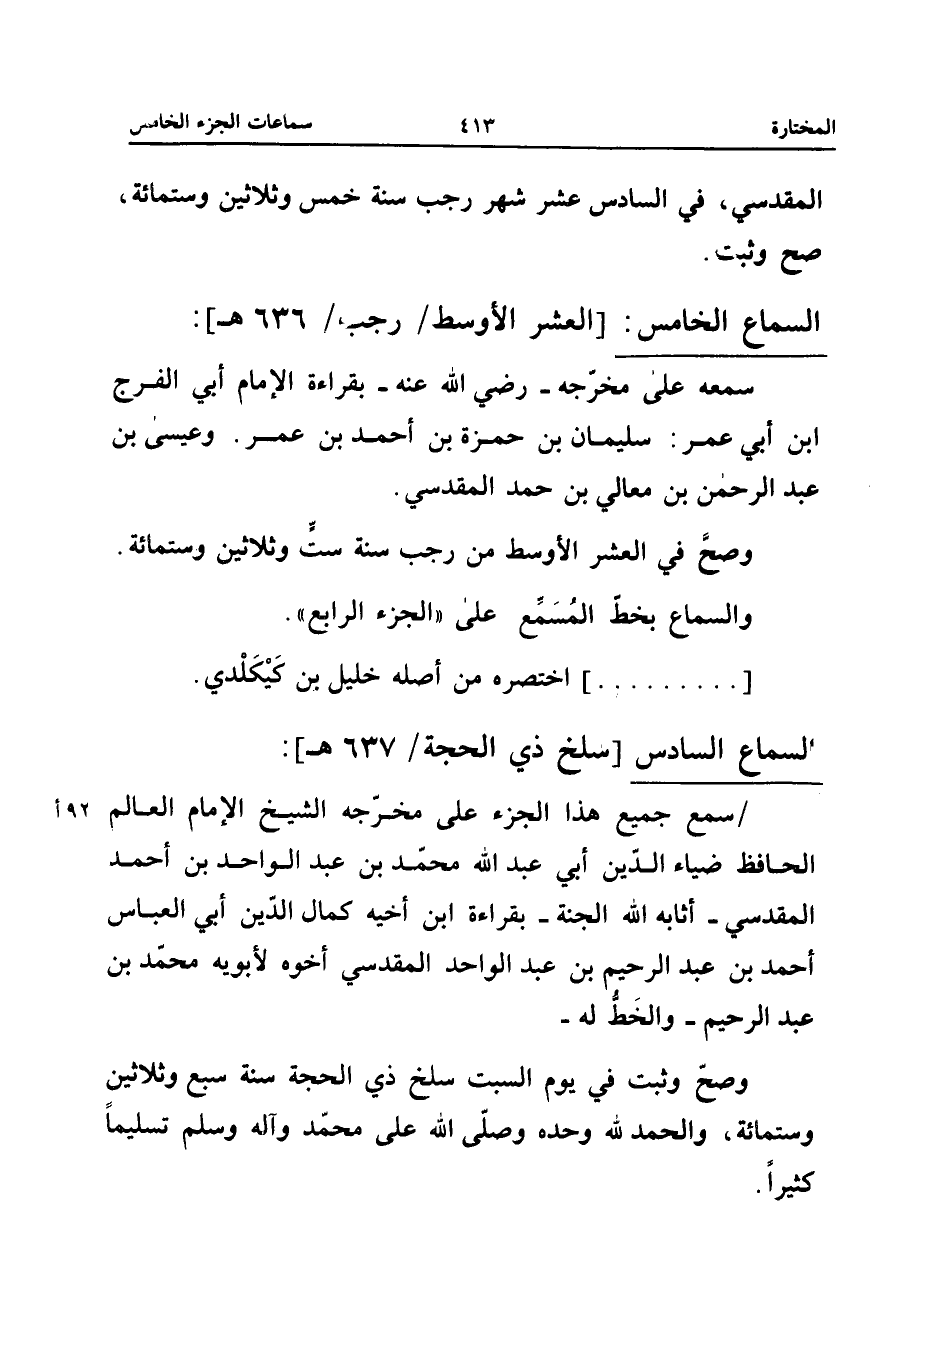 المختارة ٤١٣ سماعات الجزء الخامس
المقدسي، في السادس عشر شهر رجب سنة خمس وثلاثين وستمائة،
صح وثبت.
السماع الخامس: [العشر الأوسط/ رجب/ ٦٣٦ هـ]:
سمعه علىٰ مخرّجه ـ رضي الله عنه ـ بقراءة الإمام أبي الفرج
ابن أبي عمر: سليمان بن حمزة بن أحمد بن عمر. وعيسىٰ بن
عبد الرحمٰن بن معالي بن حمد المقدسي.
وصحَّ في العشر الأوسط من رجب سنة ستٍّ وثلاثين وستمائة.
والسماع بخطّ المُسَمِّع علىٰ «الجزء الرابع».
[.........] اختصره من أصله خليل بن كَيْكَلْدي.
السماع السادس [سلخ ذي الحجة/ ٦٣٧ هـ]:
/سمع جميع هذا الجزء على مخرّجه الشيخ الإمام العالم ٩٢أ
الحافظ ضياء الدّين أبي عبد الله محمّد بن عبد الواحد بن أحمد
المقدسي ـ أثابه الله الجنة ـ بقراءة ابن أخيه كمال الدّين أبي العباس
أحمد بن عبد الرحيم بن عبد الواحد المقدسي أخوه لأبويه محمّد بن
عبد الرحيم ـ والخَطُّ له ـ
وصحّ وثبت في يوم السبت سلخ ذي الحجة سنة سبع وثلاثين
وستمائة، والحمد لله وحده وصلّى الله على محمّد وآله وسلم تسليماً
كثيراً.